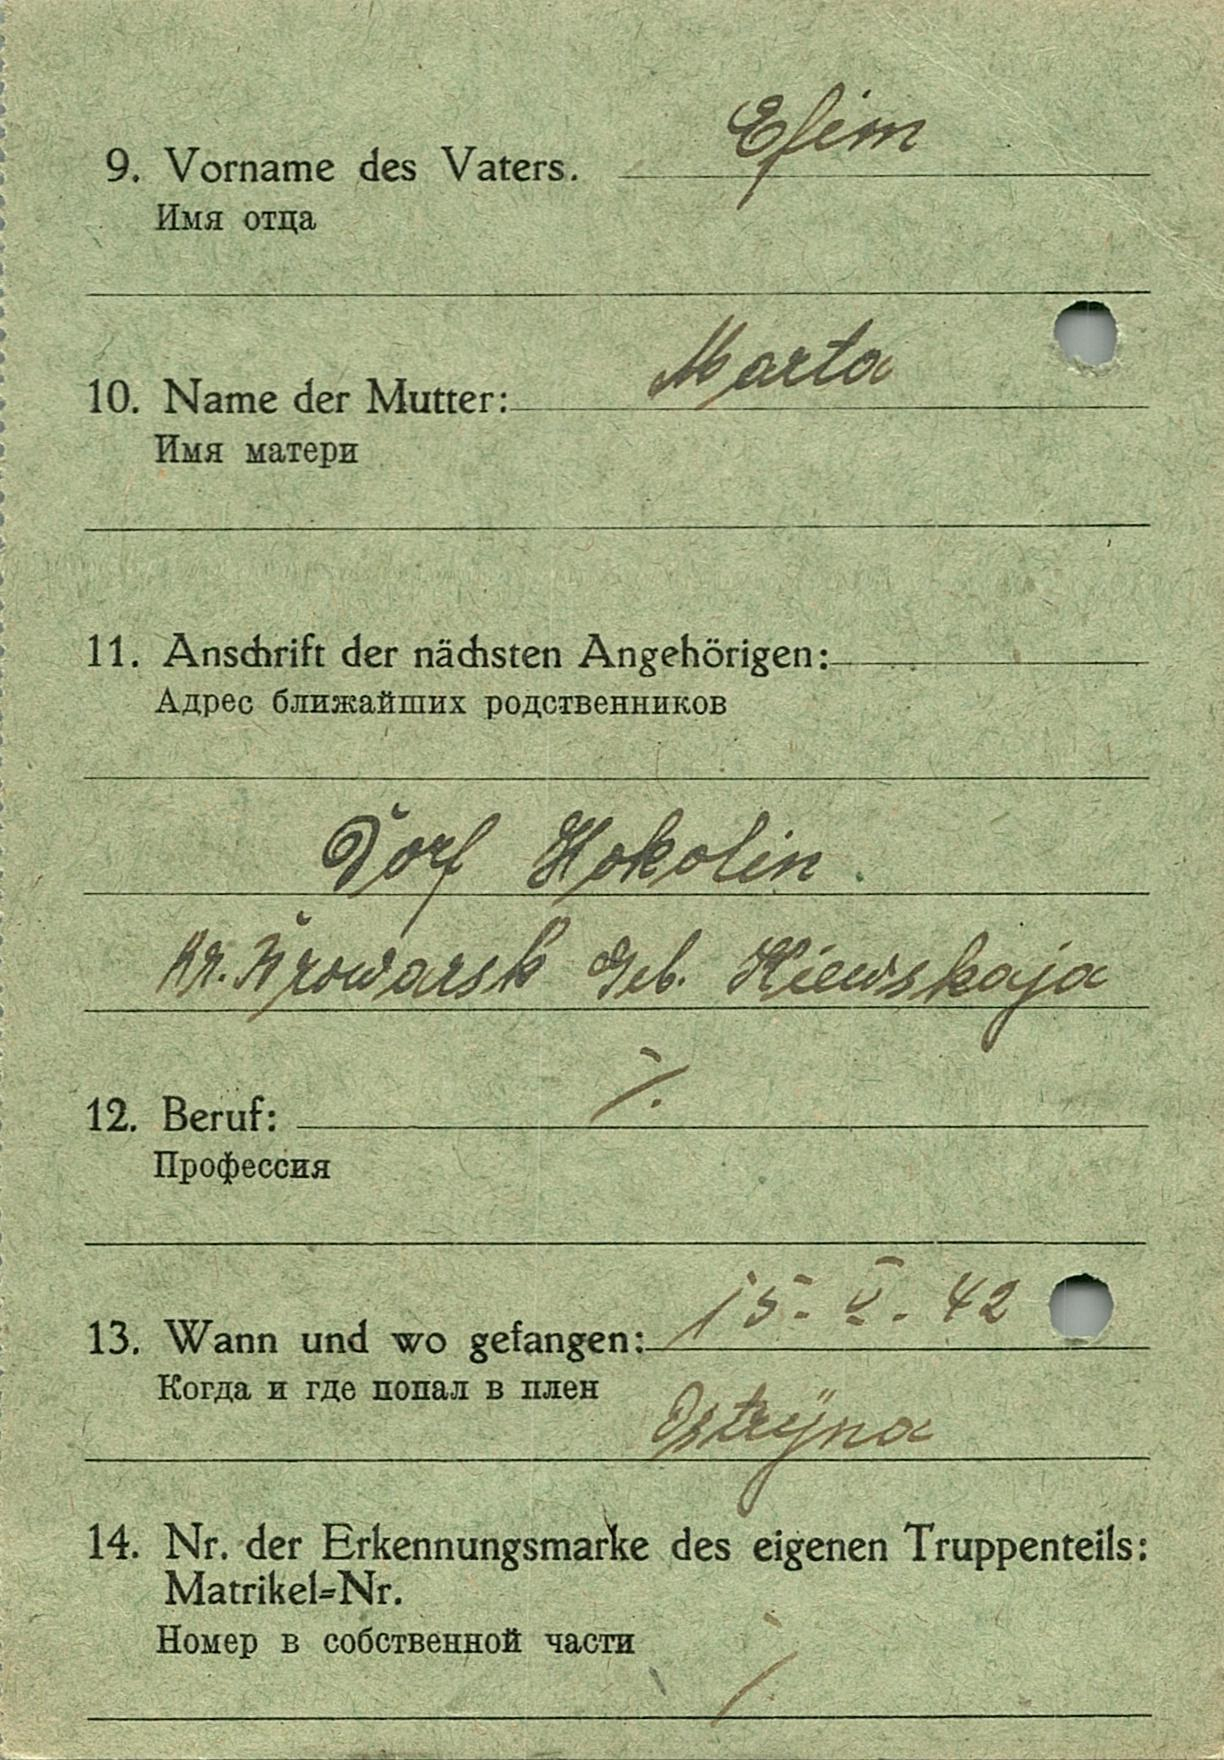 9. Vorname des Vaters. Efim
Имя отца
10. Name der Mutter: Marta
Имя матери
11. Anschrift der nächsten Angehörigen:
Адрес ближайших родственников
Dorf Hokolin.
Kr. Browarsk Geb. Kiewskaja
12. Beruf: ·/.
Профессия
13. Wann und wo gefangen: 15. V. 42
Когда и где попал в плен
Ostryna
14. Nr. der Erkennungsmarke des eigenen Truppenteils:
Matrikel=Nr.
Номер в собственной части
·/.